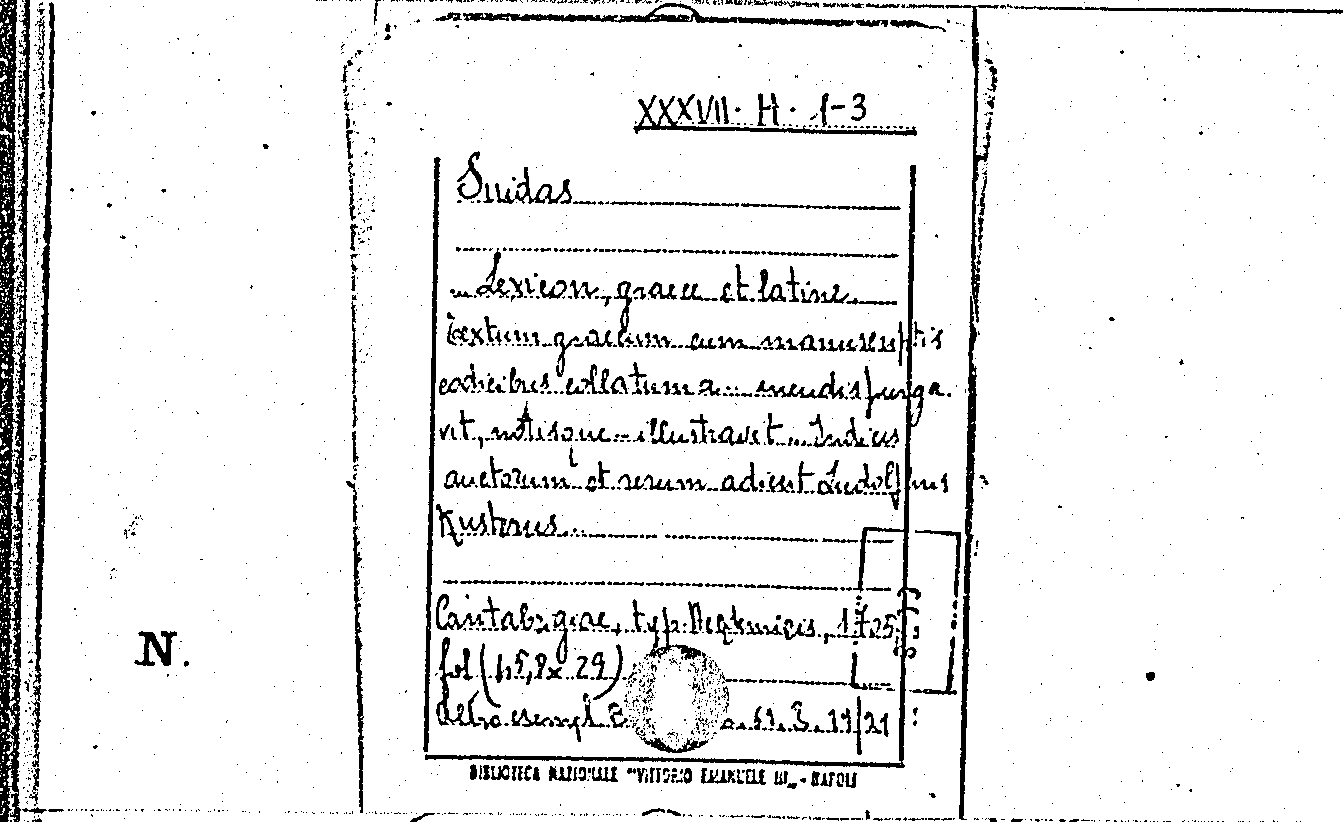 XXXVII. H. 1-3
Suidas
... Lexicon, graece et latine.
Textum graecum cum manuscriptis
codicibus collatum a ... mendis purga-
vit, notisque ... illustravit ... Indices
auctorum et rerum adiecit Ludolphus
Kusterus...
Cantabrigae, typ.
fol
Altro esempl. 3. 19/21
N.
BIBLIOTECA NAZIONALE "VITTORIO EMANUELE III„ - NAPOLI